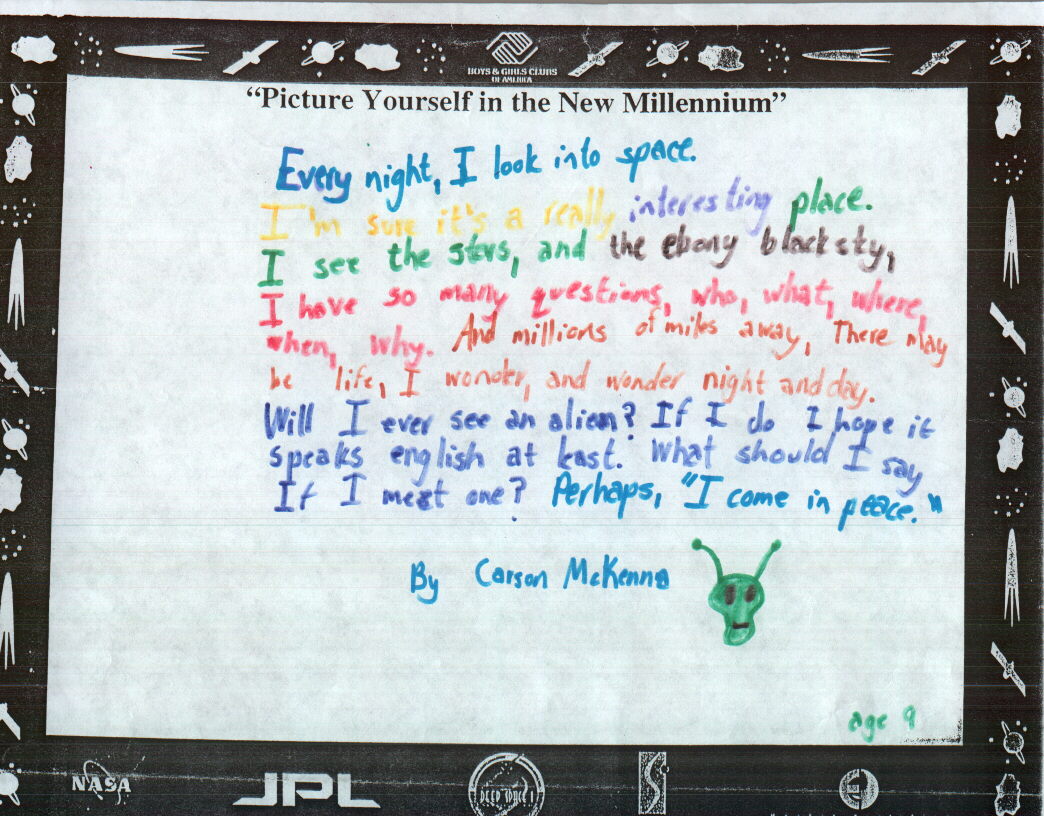 BOYS & GIRLS CLUBS
OF AMERICA
“Picture Yourself in the New Millennium”
Every night, I look into space.
I'm sure it's a really interesting place.
I see the stars, and the ebony black sky,
I have so many questions, who, what, where,
when, why. And millions of miles away, There may
be life, I wonder, and wonder night and day.
Will I ever see an alien? If I do I hope it
speaks english at least. What should I say
If I meet one? Perhaps, "I come in peace."
By Carson McKenna
age 9
NASA
JPL
DEEP SPACE 1